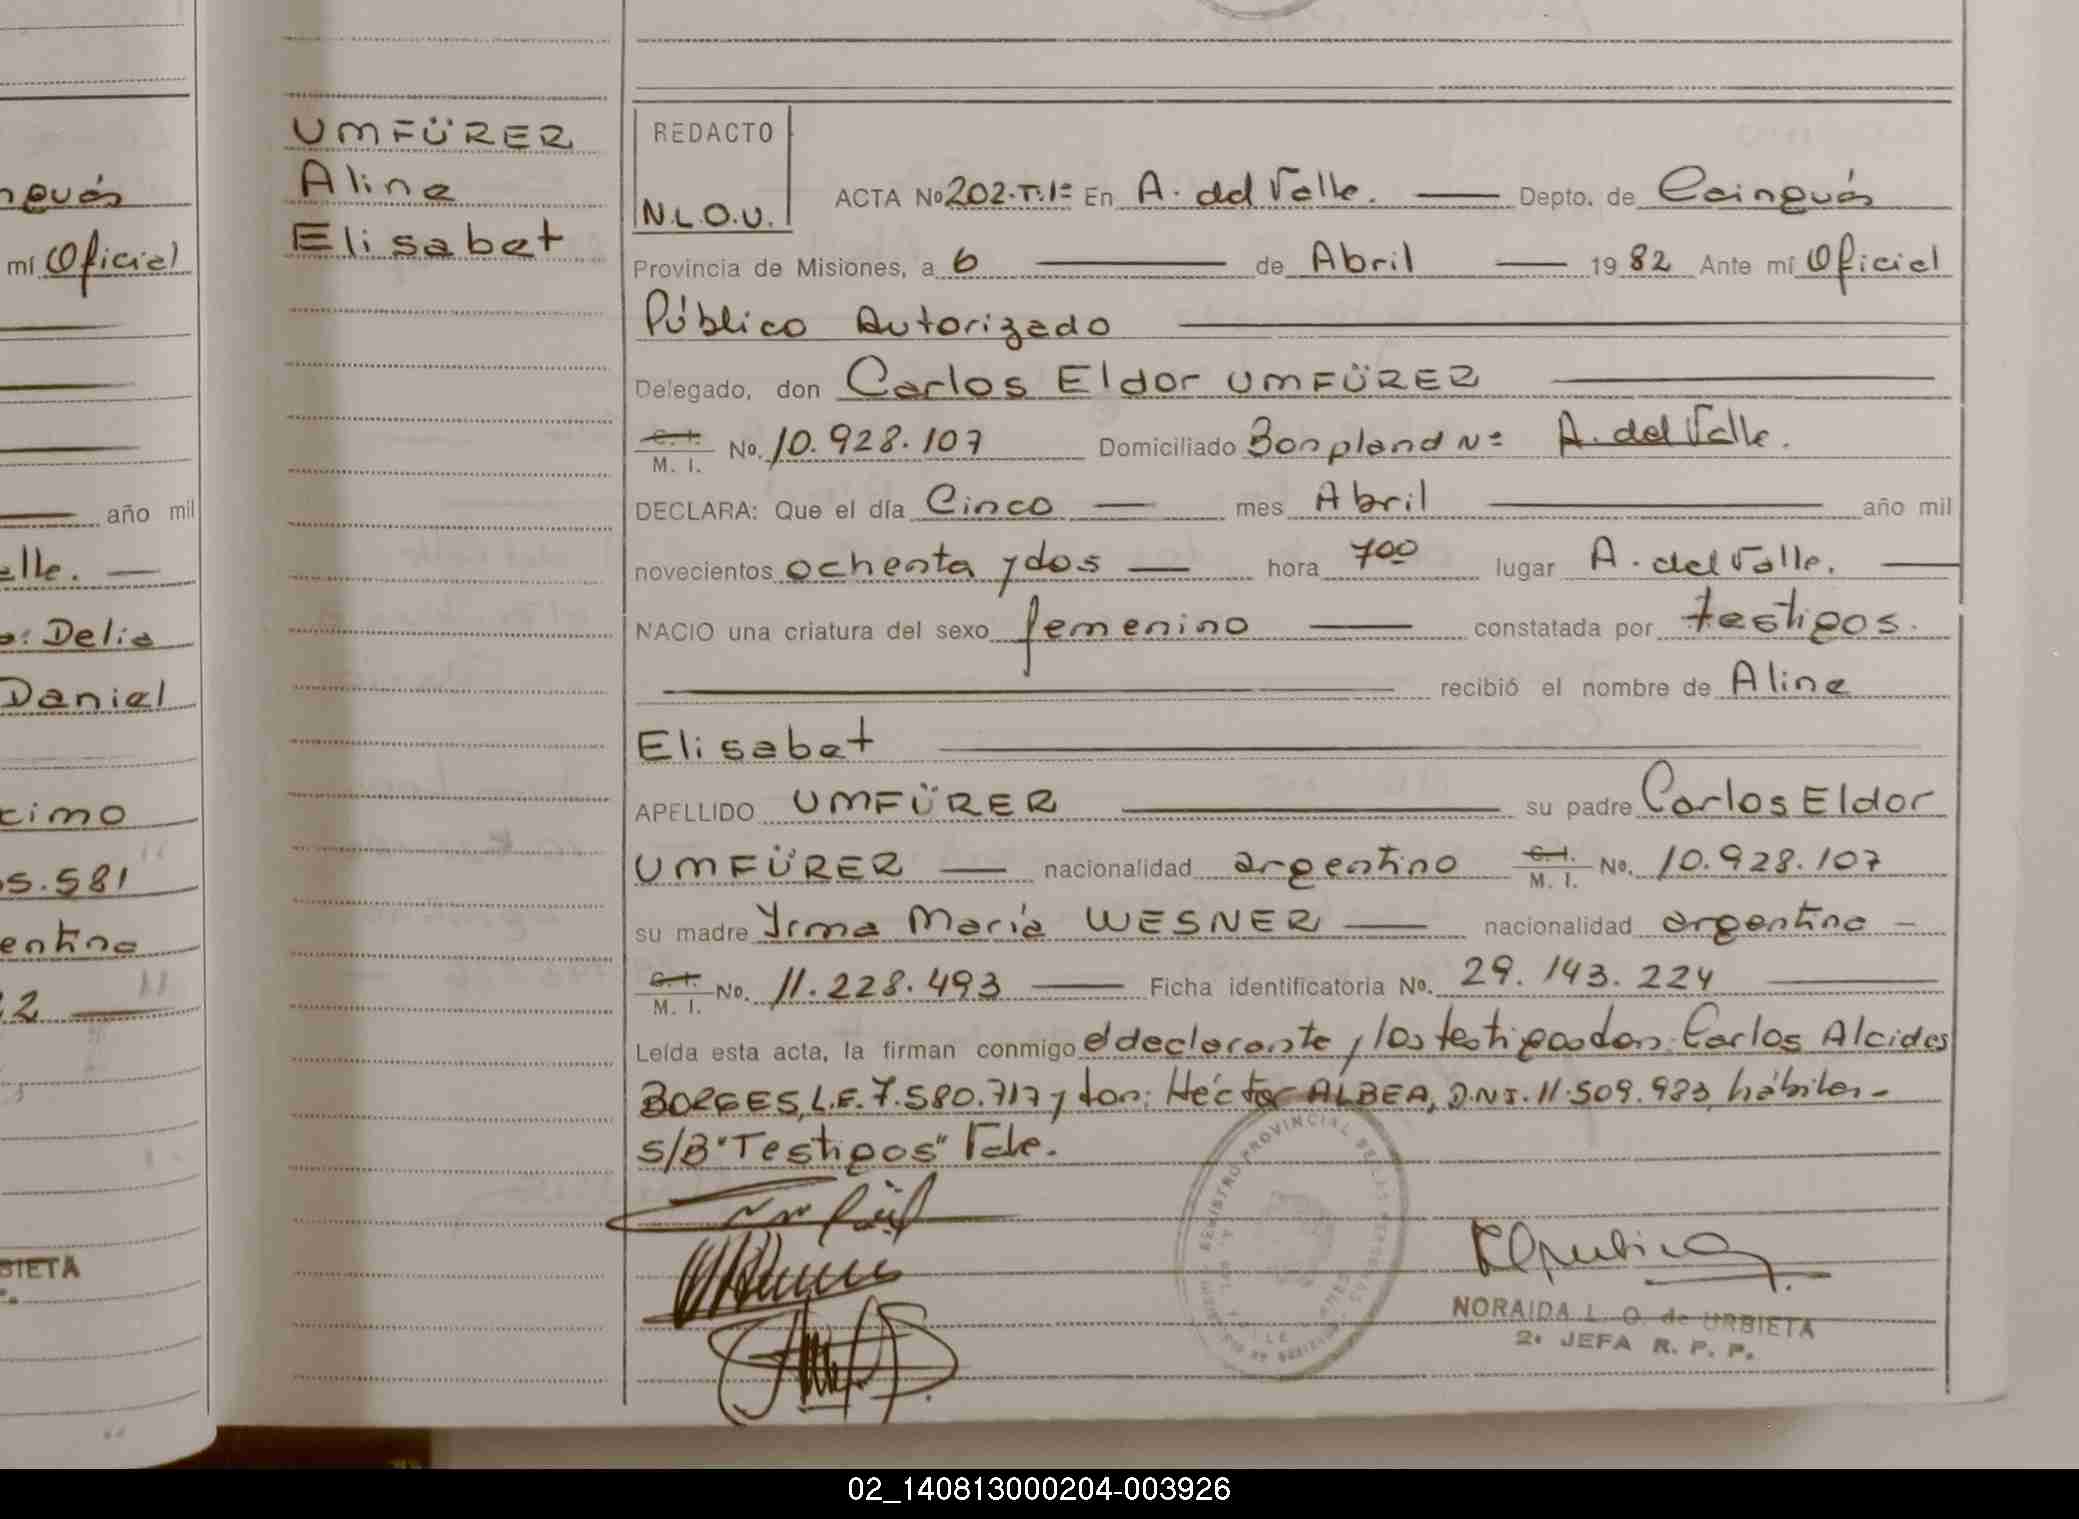 nguás
mí Oficial
año mil
elle.
Delia
Daniel
cimo
5.581
entina
2
BIETA
UMFÜRER
Aline
Elisabet
REDACTO
N.L.O.U.
ACTA Nº 202.T.1º En A. del Valle. Depto. de Cainguás
Provincia de Misiones, a 6 de Abril 1982 Ante mí Oficial
Público Autorizado
Delegado, don Carlos Eldor UMFÜRER
C. I. M. I. No. 10.928.107 Domiciliado Bonpland Nº A. del Valle.
DECLARA: Que el día Cinco mes Abril año mil
novecientos ochenta y dos hora 7oo lugar A. del Valle.
NACIO una criatura del sexo femenino constatada por testigos.
recibió el nombre de Aline
Elisabet
APELLIDO UMFÜRER su padre Carlos Eldor
UMFÜRER nacionalidad argentino C. I. M. I. No. 10.928.107
su madre Yrma María WESNER nacionalidad argentina
C. I. M. I. No. 11.228.493 Ficha identificatoria No. 29.143.224
Leída esta acta, la firman conmigo el declarante y los testigos don: Carlos Alcides
BORGES, L.E. 7.580.717 y don: Héctor ALBEA, D.N.I. 11.509.983 hábiles-
S/B "Testigos" Vale.
REGISTRO PROVINCIAL DE LAS PERSONAS
NORAIDA L. O. de URBIETA
2ª JEFA R. P. P.
02_140813000204-003926